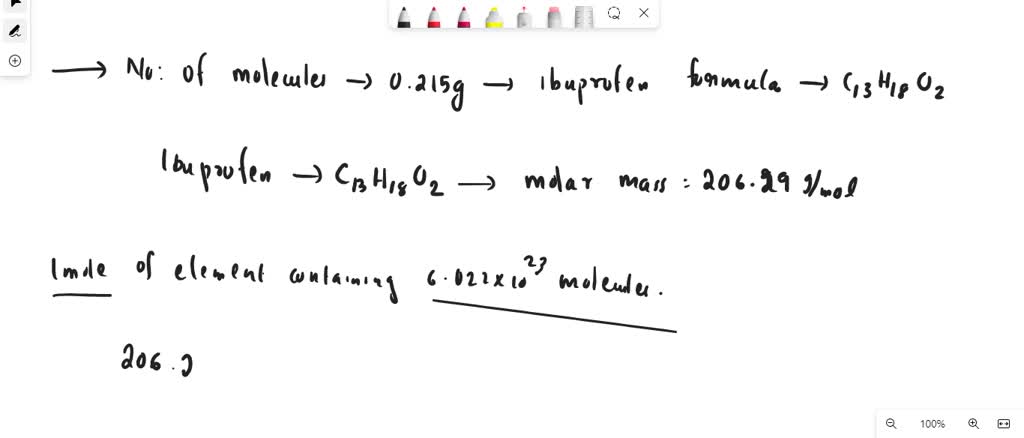 → No: of molecules → 0.215g → ibuprofen formula → C13H18O2
Ibuprofen → C13H18O2 → molar mass : 206.29 g/mol
1 mole of element containing 6.022×10^23 molecules.
206.2
100%